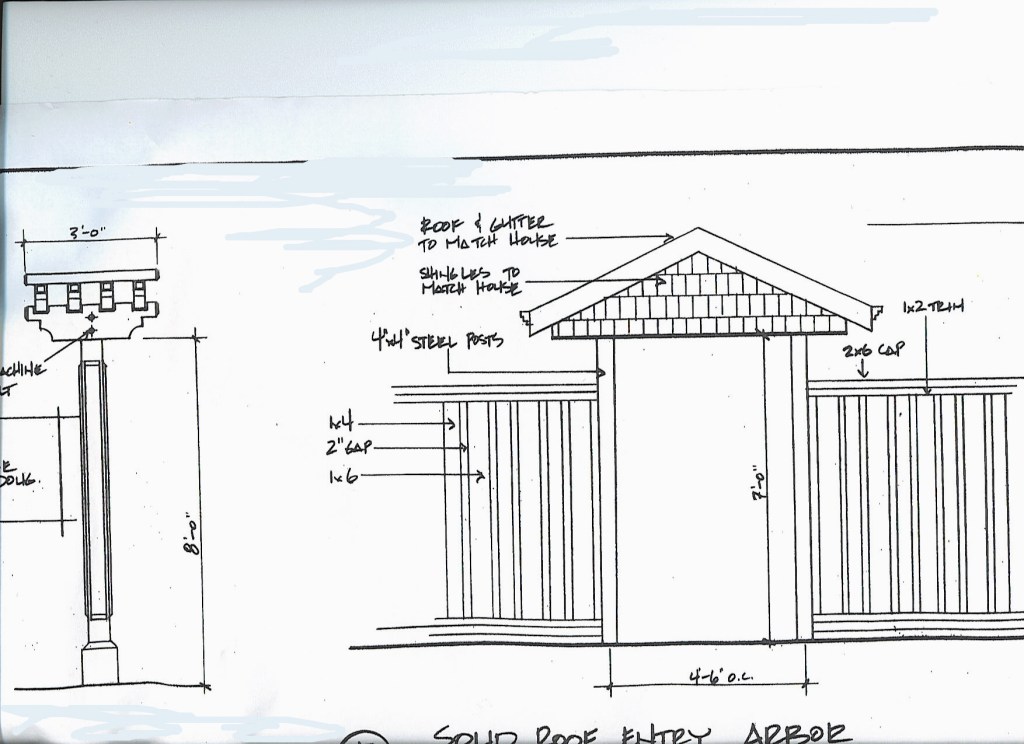 3'-0"
ROOF & GUTTER
TO MATCH HOUSE
SHINGLES TO
MATCH HOUSE
4"x4" STEEL POSTS
1x2 TRIM
2x6 CAP
ACHINE
LT
1x4
2" GAP
1x6
8'-0"
7'-0"
4'-6" O.C.
SOLID ROOF ENTRY ARBOR